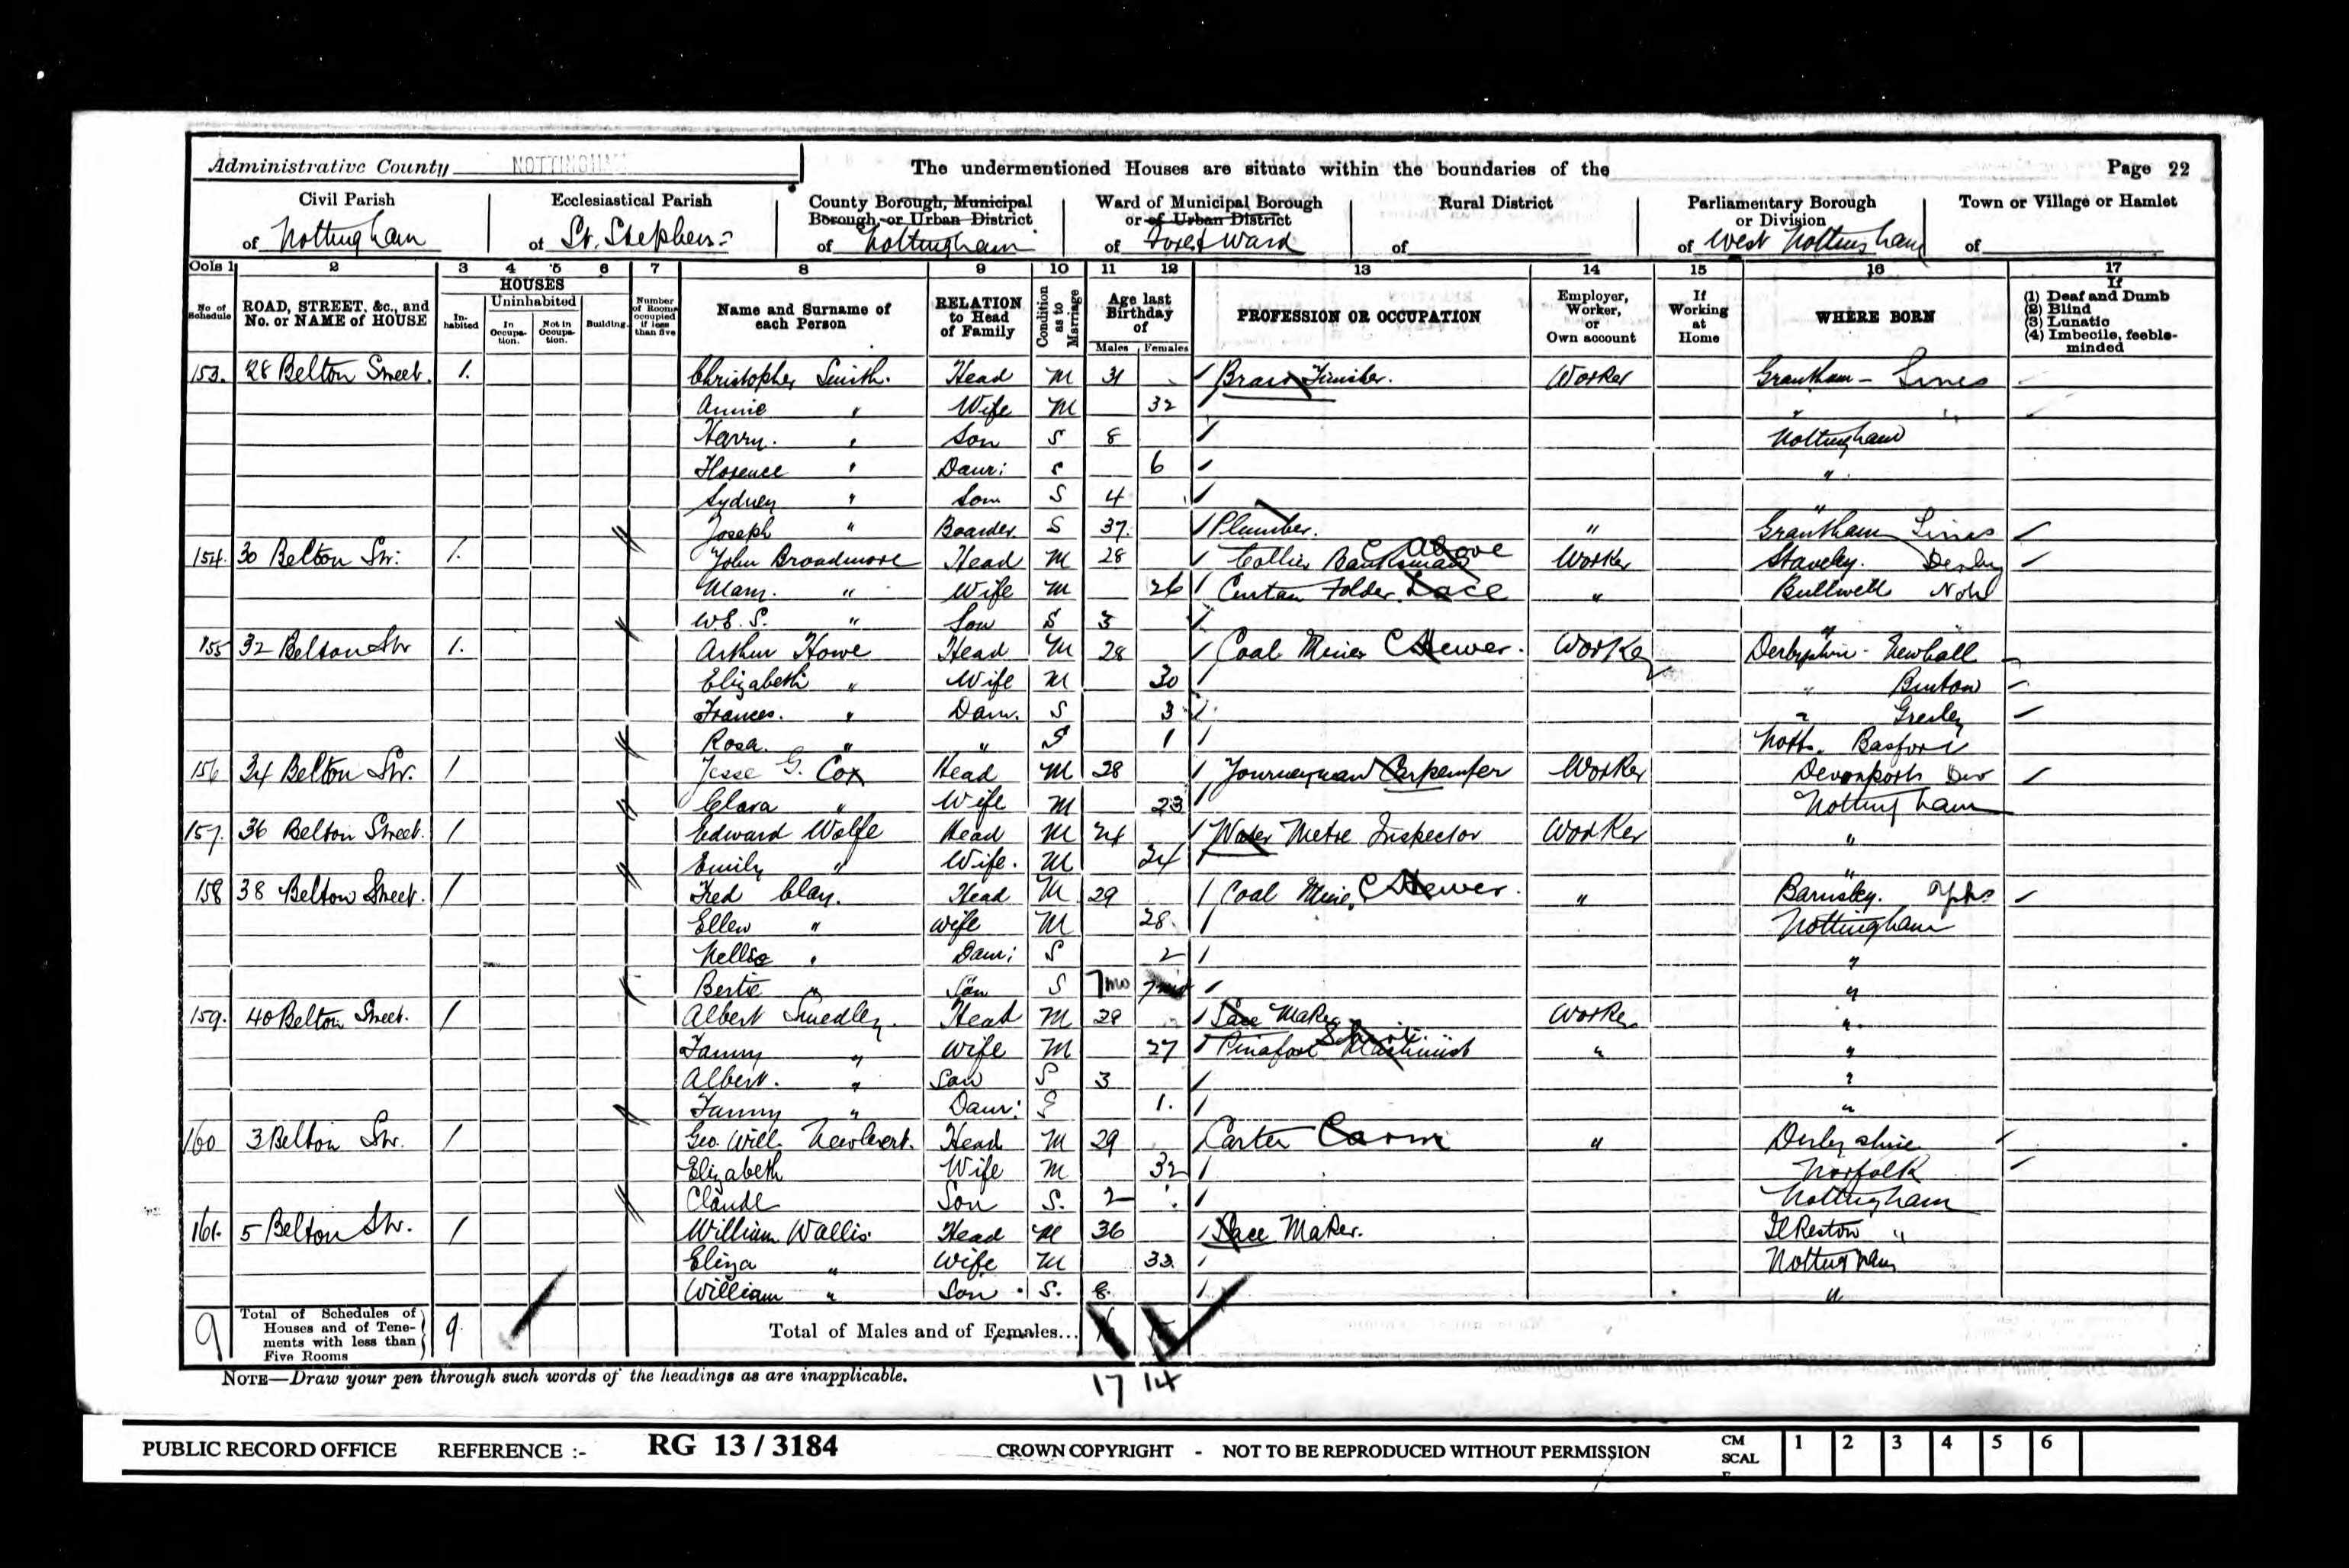 Administrative County NOTTINGHAM The undermentioned Houses are situate within the boundaries of the Page 22
Civil Parish Ecclesiastical Parish County Borough, Municipal Borough, or Urban District Ward of Municipal Borough or of Urban District Rural District Parliamentary Borough or Division Town or Village or Hamlet
of Nottingham of St. Stephens of Nottingham of Forest Ward of of West Nottingham of
Cols 1 2 3 4 5 6 7 8 9 10 11 12 13 14 15 16 17
No of Schedule ROAD, STREET, &c., and No. or NAME of HOUSE HOUSES Inhabited Uninhabited In Occupation. Not in Occupation. Building. Number of Rooms occupied if less than five Name and Surname of each Person RELATION to Head of Family Condition as to Marriage Age last Birthday of Males Females PROFESSION OR OCCUPATION Employer, Worker, or Own account If Working at Home WHERE BORN If (1) Deaf and Dumb (2) Blind (3) Lunatic (4) Imbecile, feeble-minded
153. 28 Belton Street. 1. Christopher Smith. Head M 31 Brass Finisher. Worker Grantham - Lincs
Annie " Wife M 32 " "
Harry. " Son S 8 Nottingham
Florence " Daur: S 6 "
Sydney " Son S 4 "
Joseph " Boarder S 37. Plumber. " Grantham Lincs
154. 30 Belton Str: 1. John Broadmore Head M 28 Collier Banksman C Above Worker Staveley. Derby
Mary. " Wife M 26 Curtan Folder. Lace " Bullwell Notts
W.E.S. " Son S 3 "
155 32 Belton Str 1. Arthur Howe Head M 28 Coal Miner C Hewer. Worker Derbyshire - Newhall
Elizabeth " Wife M 30 " Burton
Frances. " Daur. S 3 " Gresley
Rosa. " " S 1 Notts. Basford
156 34 Belton Str. 1 Jesse G. Cox Head M 28 Journeyman Carpenter Worker Devonport Dev
Clara " Wife M 23 Nottingham
157. 36 Belton Street. 1 Edward Wolfe Head M 24 Water Metre Inspector Worker "
Emily " Wife. M 24 "
158 38 Belton Street. 1 Fred Clay. Head M 29 Coal Miner, C Hewer. " Barnsley. Yorks
Ellen " Wife M 28 Nottingham
Nellie " Daur: S 2 "
Bertie " Son S 7mo 7mo "
159. 40 Belton Street. 1 Albert Smedley. Head M 29 Lace Maker Worker "
Fanny " Wife M 27 Pinafore Machinist " "
Albert. " Son S 3 "
Fanny " Daur: S 1. "
160 3 Belton Str. 1 Geo. Will. Head M 29 Carter Carm " Derbyshire
Elizabeth Wife M 32 Norfolk
Claude Son S. 2 Nottingham
161. 5 Belton Str. 1 William Wallis Head M 36 Lace Maker. Ilkeston "
Eliza " Wife M 33. Nottingham
William " Son S. 8. "
9 Total of Schedules of Houses and of Tenements with less than Five Rooms 9. Total of Males and of Females...
17 14
NOTE—Draw your pen through such words of the headings as are inapplicable.
PUBLIC RECORD OFFICE REFERENCE :- RG 13 / 3184 CROWN COPYRIGHT - NOT TO BE REPRODUCED WITHOUT PERMISSION CM SCAL 1 2 3 4 5 6